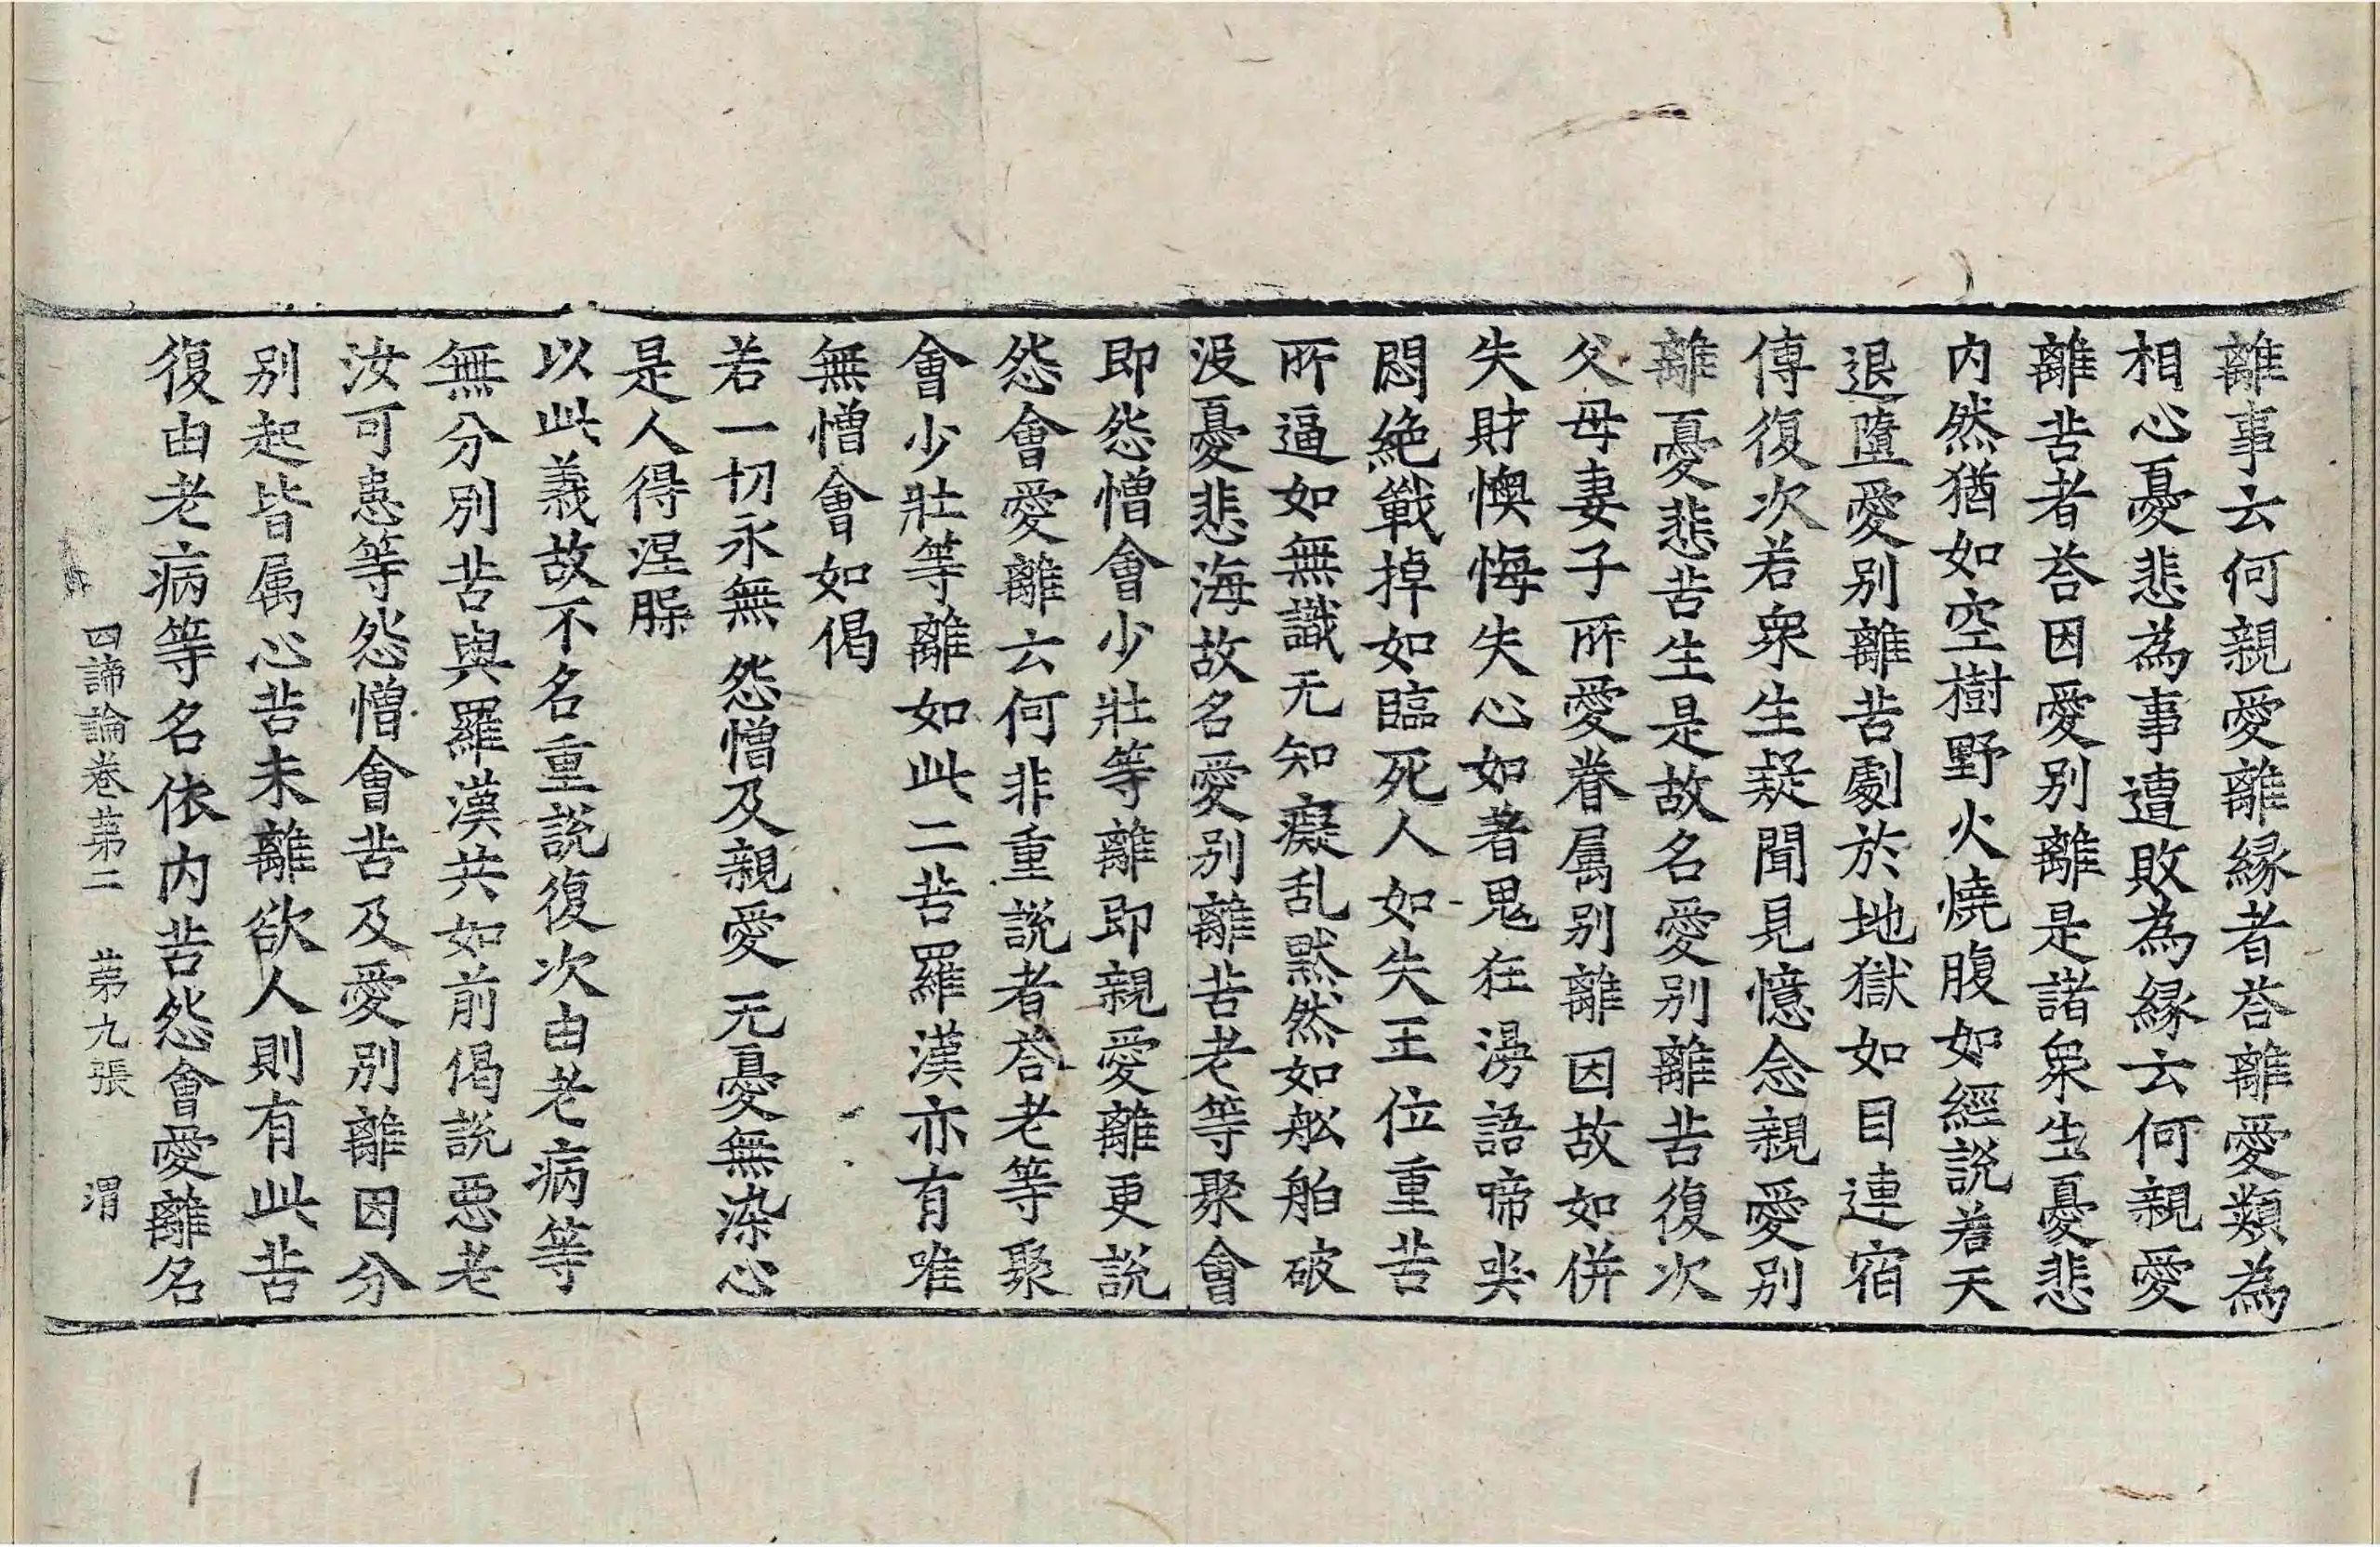 離事云何親愛離縁者荅離愛類為
相心憂悲為事遭敗為縁云何親愛
離苦者荅因愛别離是諸衆生憂悲
内然猶如空樹野火燒腹如經説若天
退墮愛别離苦劇於地獄如目連宿
傳復次若衆生疑聞見憶念親愛别
離憂悲苦生是故名愛别離苦復次
父母妻子所愛眷属别離因故如併
失財懊悔失心如著鬼狂湯語啼哭
悶絶戰掉如臨死人如失王位重苦
所逼如無識无知癡乱黙然如舩舶破
没憂悲海故名愛别離苦老等聚會
即怨憎會少壯等離即親愛離更説
怨會愛離云何非重説者荅老等聚
會少壯等離如此二苦羅漢亦有唯
無憎會如偈
若一切永無 怨憎及親愛 无憂無染心
是人得涅脲
以此義故不名重説復次由老病等
無分别苦與羅漢共如前偈説惡老
汝可恚等怨憎會苦及愛别離因分
别起皆属心苦未離欲人則有此苦
復由老病等名依内苦怨會愛離名
四諦論卷第二 第九張 渭
1